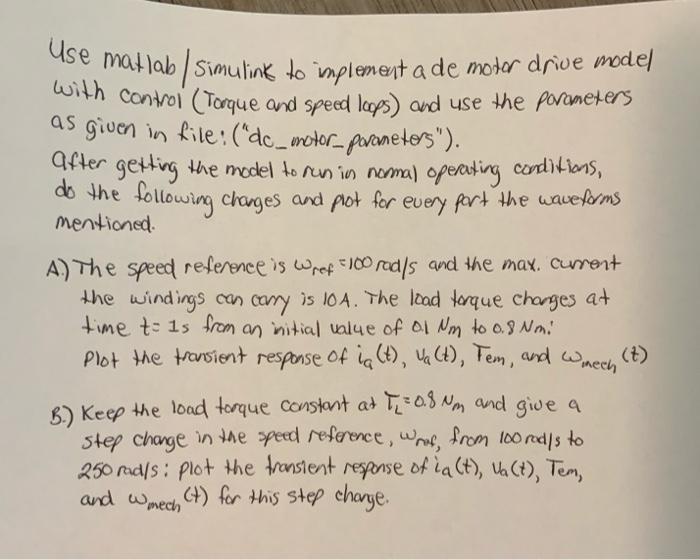 Use matlab/simulink to implement a dc motor drive model
with control (Torque and speed loops) and use the parameters
as given in file: ("dc_motor_parameters").
after getting the model to run in normal operating conditions,
do the following changes and plot for every part the waveforms
mentioned.
A.) The speed reference is ωref = 100 rad/s and the max. current
the windings can carry is 10A. The load torque changes at
time t = 1s from an initial value of 0.1 Nm to 0.8 Nm:
Plot the transient response of ia(t), Va(t), Tem, and ωmech(t)
B.) Keep the load torque constant at TL = 0.8 Nm and give a
step change in the speed reference, ωref, from 100 rad/s to
250 rad/s: plot the transient response of ia(t), Va(t), Tem,
and ωmech(t) for this step change.